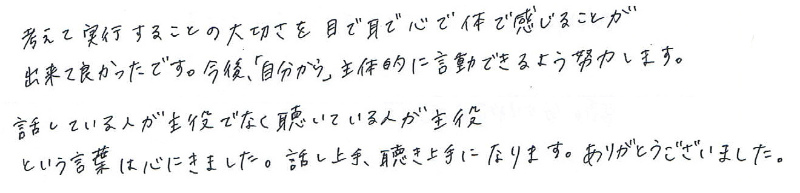 考えて実行することの大切さを目で耳で心で体で感じることが
出来て良かったです。今後、「自分から」主体的に言動できるよう努力します。
話している人が主役でなく聴いている人が主役
という言葉は心にきました。話し上手、聴き上手になります。ありがとうございました。